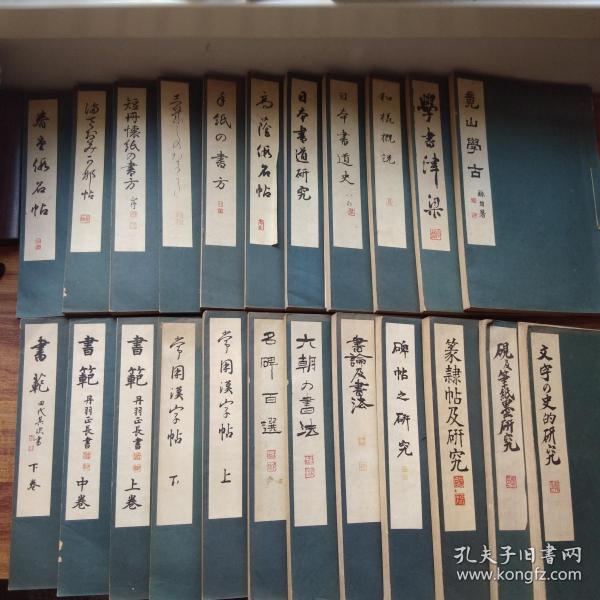 竟山學古
學書津梁
和様概説
日本書道史
日本書道研究
手紙の書方
短冊懐紙の書方
文字の史的研究
硯及筆紙墨研究
篆隷帖及研究
碑帖之研究
書論及書法
六朝の書法
名碑百選
常用漢字帖 上
常用漢字帖 下
書範 丹羽正長書 上巻
書範 丹羽正長書 中巻
書範 田代其次書 下卷
孔夫子旧書网
www.kongfz.com